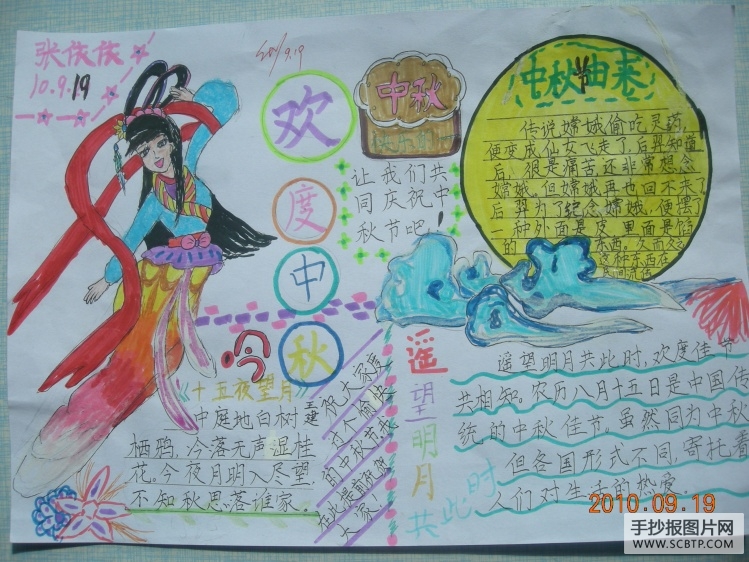 张依依
10.9.19
欢
度
中
秋
中秋
让我们共
同庆祝中
秋节吧!
中秋节由来
传说嫦娥偷吃灵药
便变成仙女飞走了,后羿知道
后,很是痛苦还非常想念
嫦娥。但嫦娥再也回不来了
后羿为了纪念嫦娥,便摆了
一种外面是皮里面是馅
的东西,久而久之
这种东西在
民间流传
吟
《十五夜望月》
王建
中庭地白树
栖鸦,冷落无声湿桂
花。今夜月明入尽望,
不知秋思落谁家。
祝大家度
过个愉快
的中秋节
在此提前祝贺
大家!
遥
望
明
月
共此时
遥望明月共此时,欢度佳节
共相知。农历八月十五日是中国传
统的中秋佳节。虽然同为中秋
但各国形式不同,寄托着
人们对生活的热爱
2010.09.19
手抄报图片网
WWW.SCBTP.COM